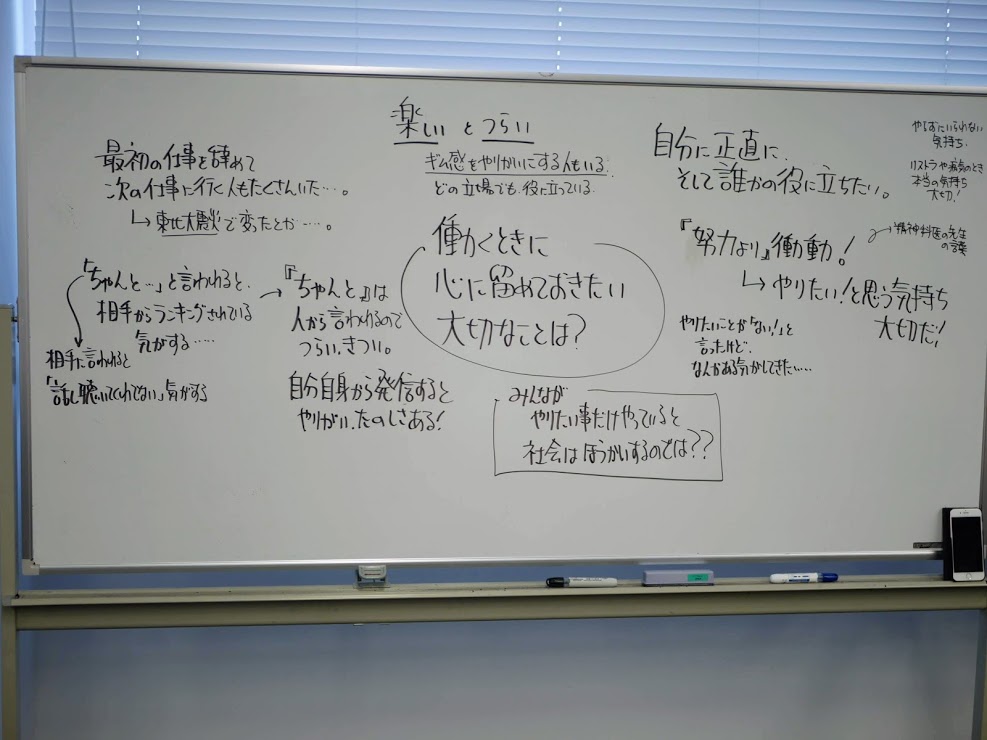 楽しい と つらい
ギム感をやりがいにする人もいる
どの立場でも役に立っている
最初の仕事を辞めて
次の仕事に行く人もたくさんいた…。
↳東北大震災で変ったとか……。
働くときに
心に留めておきたい
大切なことは?
自分に正直に、
そして誰かの役に立ちたい。
やらずにいられない
気持ち。
リストラや病気のとき
本当の気持ち
大切!
『努力より』衝動!
精神科医の先生
の言葉
↳やりたい!と思う気持ち
大切だ!
やりたいことが「ない!」と
言ったけど、
なんかある気がしてきた……
「ちゃんと…」と言われると、
相手からランキングされている
気がする……
相手に言われると
「話し聴いてくれてない」気がする
→『ちゃんと』は
人から言われるので
つらい、きつい。
自分自身から発信すると
やりがい、たのしさある!
みんなが
やりたい事だけやっていると
社会はほうかいするのでは??